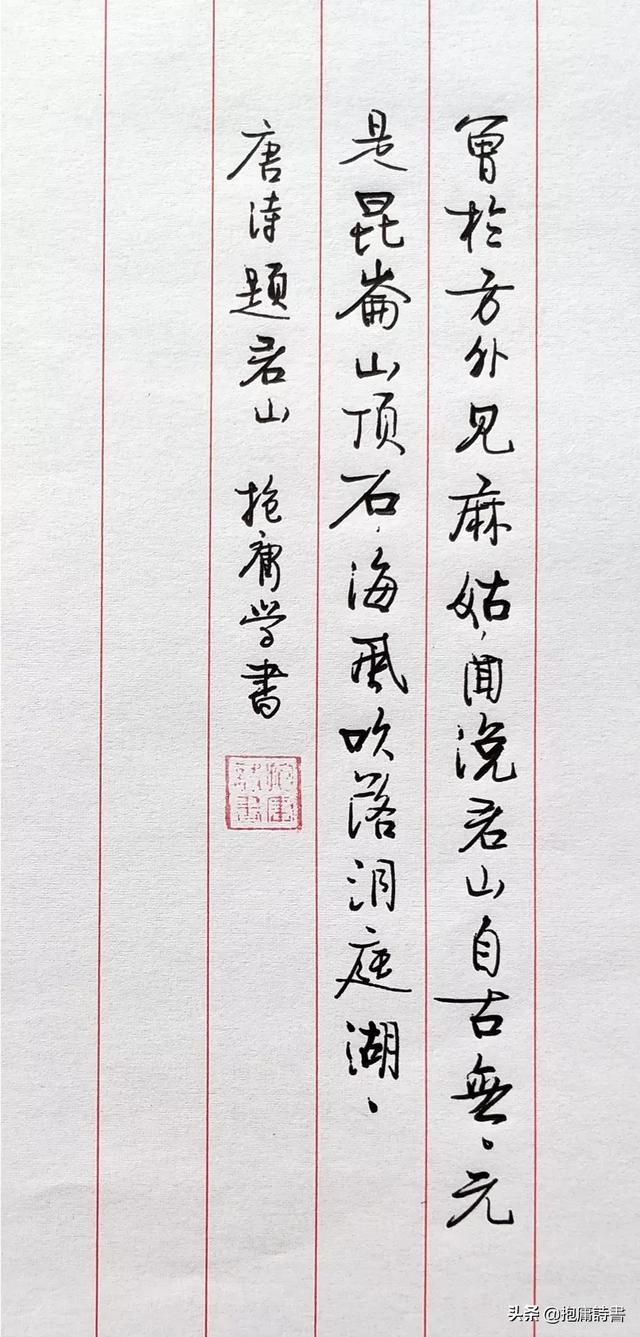 曾於方外见麻姑，闻说君山自古無、元
是昆崙山顶石，海风吹落洞庭湖、
唐诗题君山 抱庸学書
头条 @抱庸詩書